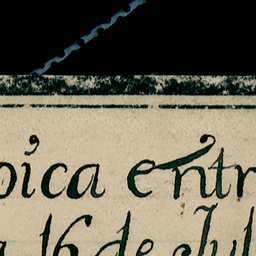 oica entr
a 16 de Jul